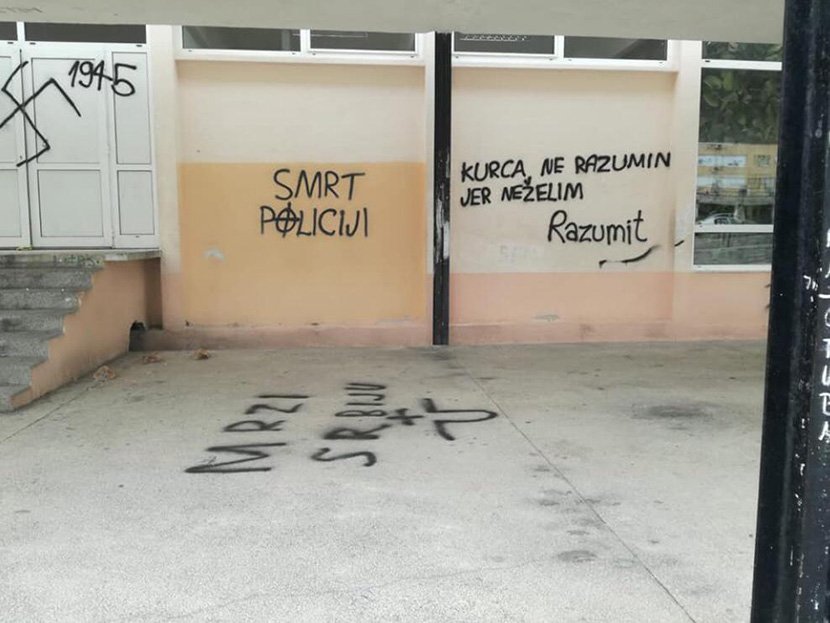 1945
SMRT
POLICIJI
KURCA, NE RAZUMIN
JER NEŽELIM
Razumit
MRZI
SRBIJU
+U